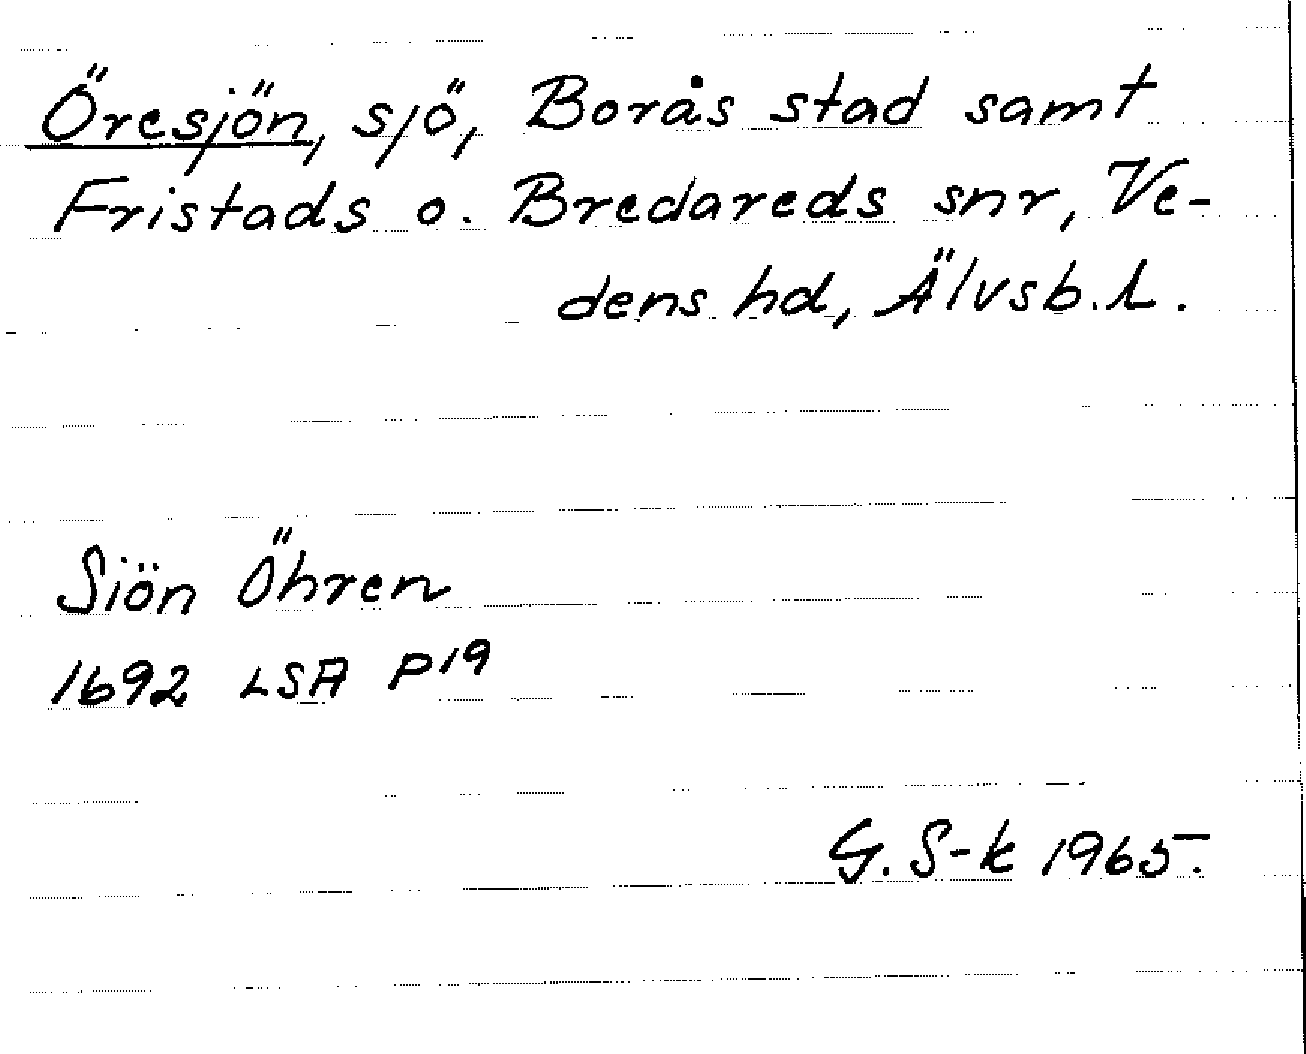 Öresjön, sjö, Borås stad samt
Fristads o. Bredareds snr, Ve-
dens hd, Älvsb. l.
Siön Öhren
1692 LSA P19
G. S-k 1965.